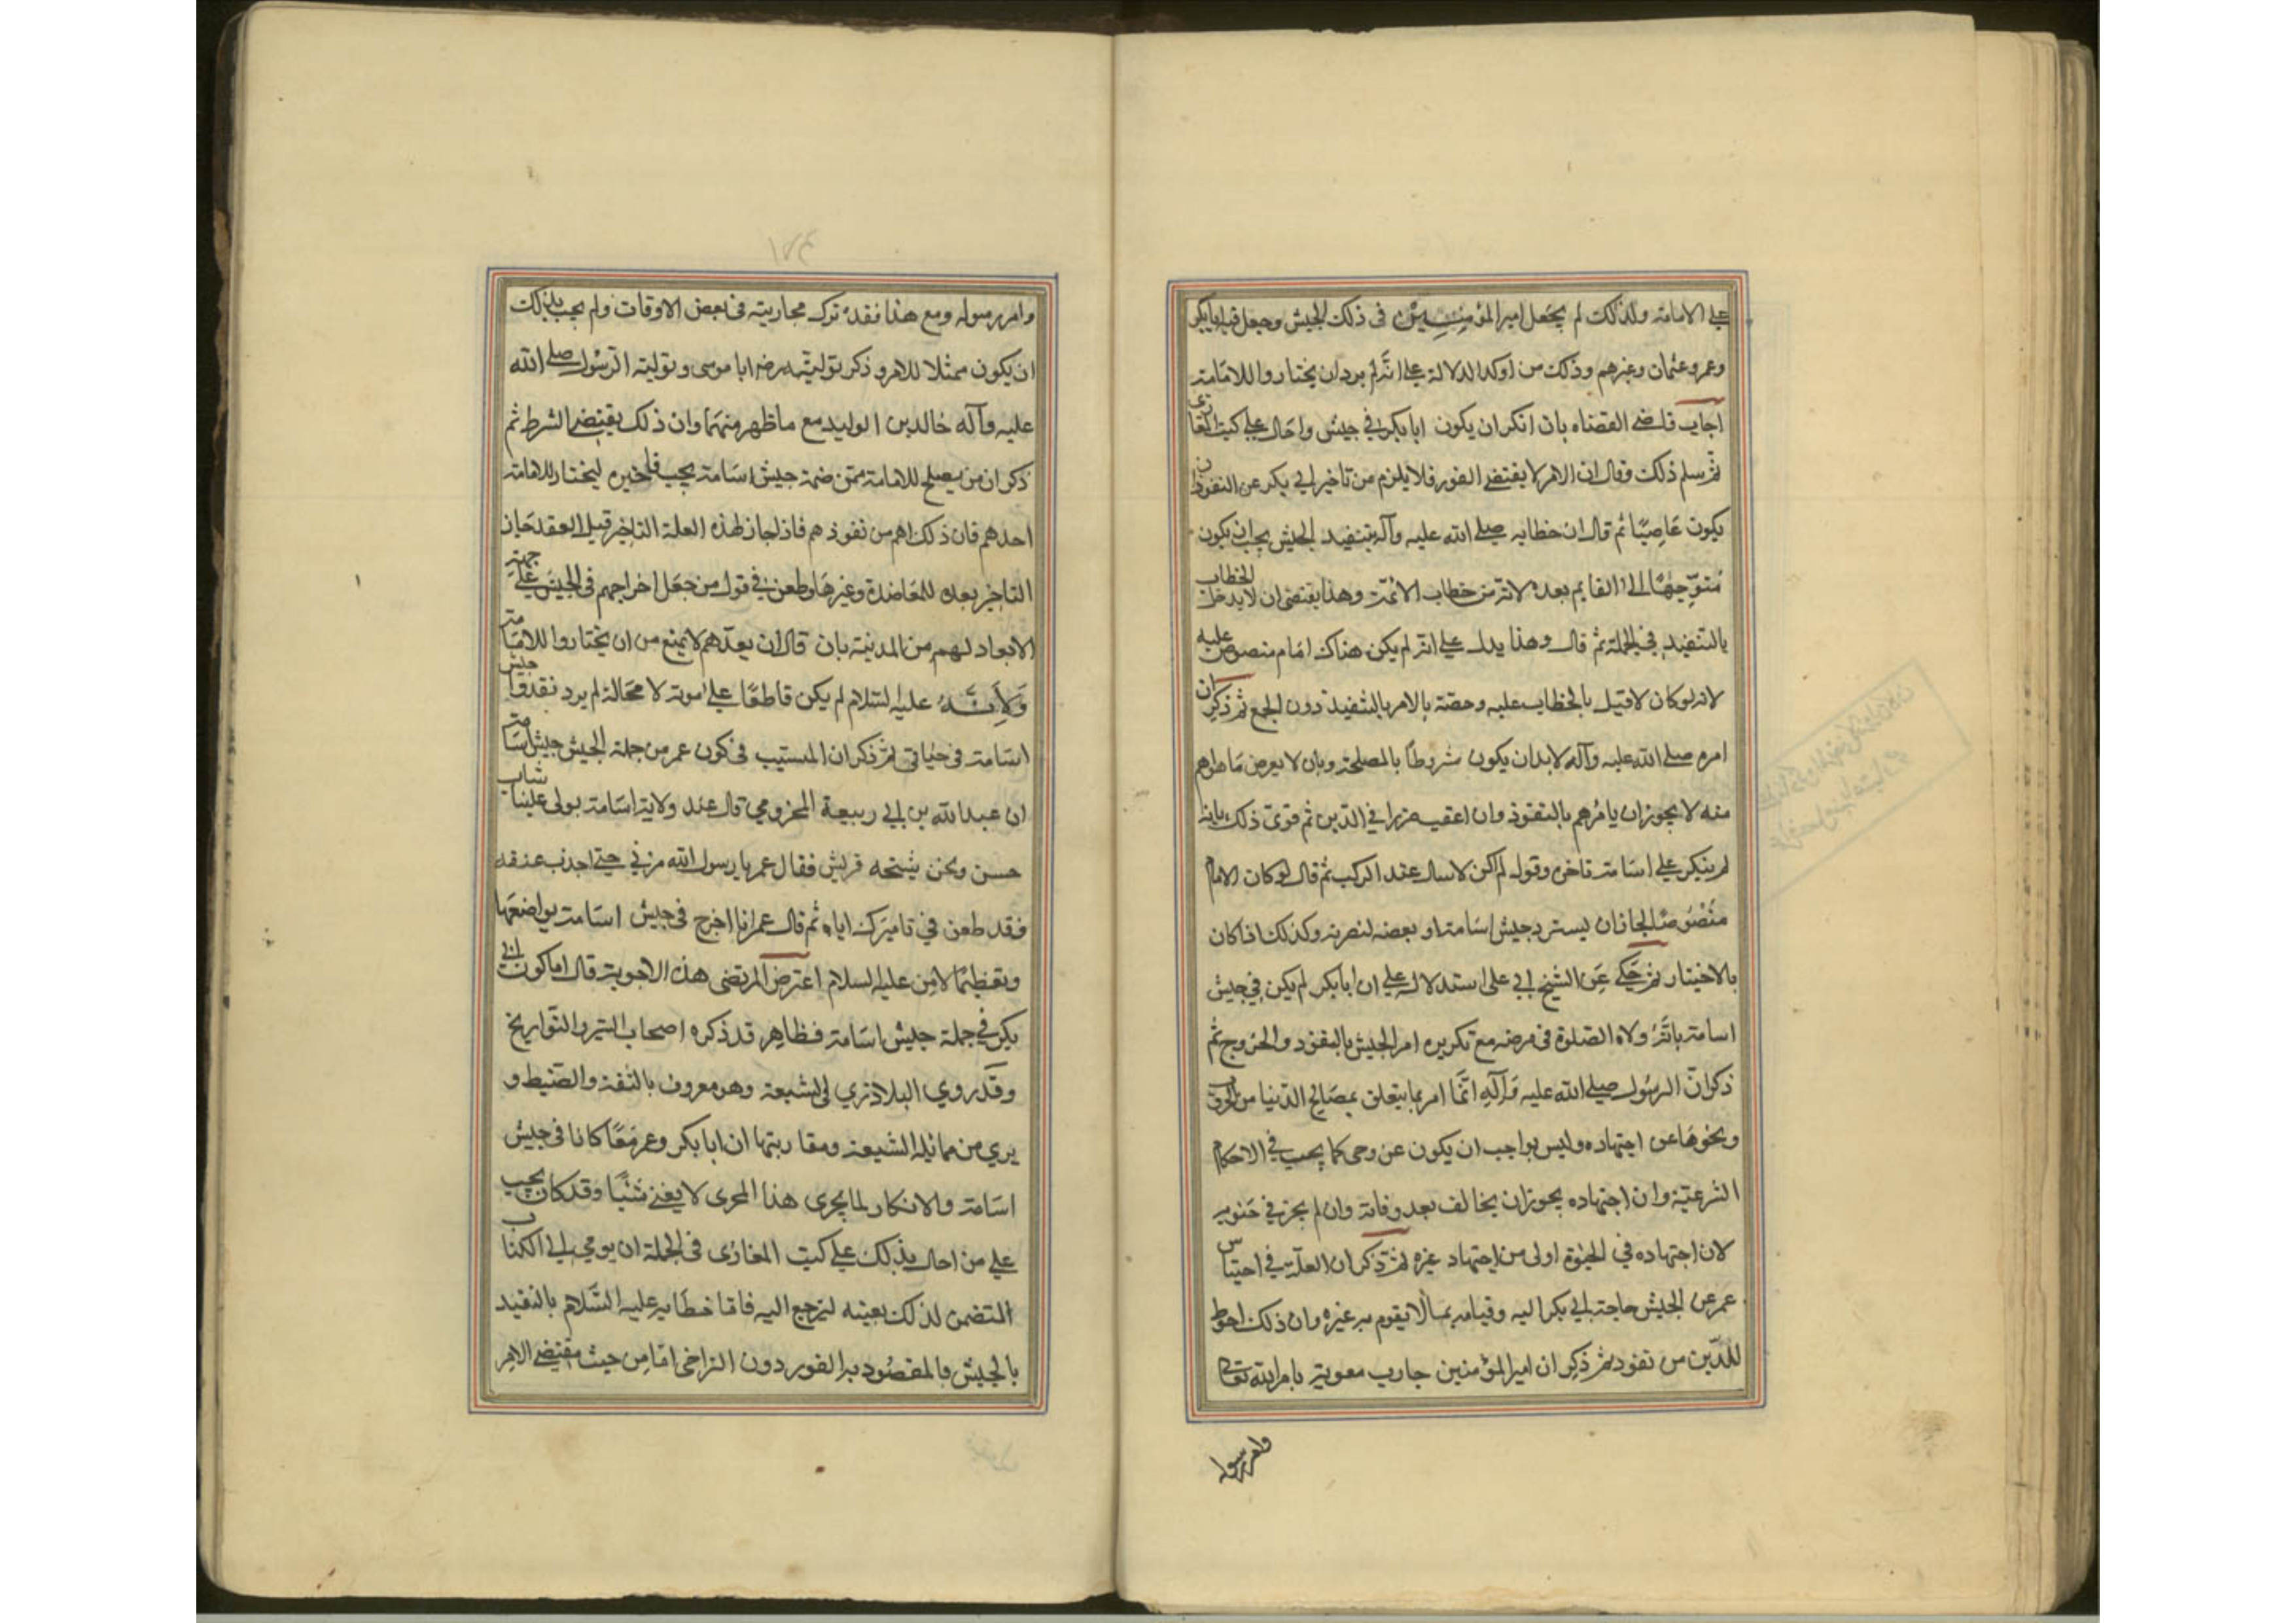 على الامامة ولذلك لم يجعل امير المؤمنين في ذلك الجيش وجعل فيه ابا بكر
وعمر وعثمان وغيرهم وذلك من اوكد الدلالة على انه لم يرد ان يختاروا للامامة
اجاب قاضي القضاه بان انكر ان يكون ابا بكر في جيش واحال على كتب المغازي
ثم سلم ذلك وقال ان الامر لا يقتضي الفور فلا يلزم من تاخير ابي بكر عن النفوذ ان
يكون عاصيا ثم قال ان خطابه صلى الله عليه وآله بتنفيد الجيش يجب ان يكون
متوجها الى القايم بعده لانه من خطاب الائمة وهذا يقتضي ان لا يدخل الخطاب
بالتنفيد في الجملة ثم قال وهذا يدل على انه لم يكن هناك امام منصوص عليه
لانه لو كان لاقبل بالخطاب عليه وخصه بالامر بالتنفيذ دون الجمع ثم ذكر ان
امره صلى الله عليه وآله لابد ان يكون شروطا بالمصلحة وبان لا يعرض ما هو اهم
منه لا يجوز ان يامرهم بالنفوذ وان اعقب ضررا في الدين ثم قوى ذلك بانه
لم ينكر على اسامة تاخره وقوله لم اكن لاسال عنك الركب ثم قال لو كان الامام
منصوصا لجاز ان يسترد جيش اسامة او بعضه لنصرته وكذلك اذا كان
بالاختيار ثم حكى عن الشيخ ابي على استدلاله على ان ابا بكر لم يكن في جيش
اسامة بانه ولاه الصلوة في مرضه مع تكريره امر الجيش بالنفوذ والخروج ثم
ذكر ان الرسول صلى الله عليه وآله انما امر بما يتعلق بمصالح الدنيا من الحروب
ونحوها عن اجتهاده وليس بواجب ان يكون عن وحي كما يجب في الاحكام
الشرعية وان اجتهاده يجوز ان يخالف بعد وفاته وان لم يجز في
لان اجتهاده في الحيوة اولى من اجتهاد غيره ثم ذكر ان العلة في احتباس
عمر عن الجيش حاجة ابي بكر اليه وقيامه بما لا يقوم به غيره وان ذلك احوط
للدين من نفوذه ثم ذكر ان امير المؤمنين حارب معوية بامر الله تعالى
وامر رسوله
وامر رسوله ومع هذا فقد ترك محاربته في بعض الاوقات ولم يجب بذلك
ان يكون ممثلا للامر وذكر توليته ابا موسى وتولية الرسول صلى الله
عليه وآله خالد بن الوليد مع ما ظهر منهما وان ذلك يقتضي الشرط ثم
ذكر ان من يصلح للامامة ممن ضمه جيش اسامة يجب تاخيره ليختار للامامة
احدهم فان ذلك اهم من نفوذهم فاذا جاز لهذه العلة التاخير قبل العقد جاز
التاخير بعده للمعاضدة وغيرها وطعن في قول من جعل اخراجهم في الجيش على جهة
الابعاد لهم من المدينة بان قال ان بعدهم لا يمنع من ان يختاروا للامامة
ولانه عليه السلام لم يكن قاطعا على موته لا محالة لم يرد نفذوا جيش
اسامة في حياتي ثم ذكر ان السبب في كون عمر من جملة الجيش جيش اسامة
ان عبد الله بن ابي ربيعة المخزومي قال عند ولاية اسامة تولى علينا شاب
حسن ونحن قريش فقال عمر يا رسول الله مرني حتى اضرب عنقه
فقد طعن في تاميرك اياه ثم قال عمر انا اخرج في جيش اسامة تواضعا
وتعظيما لامره عليه السلام اعترض المرتضى هذه الاجوبة قال اما كون ابي
بكر في جملة جيش اسامة فظاهر قد ذكره اصحاب السير والتواريخ
وقد روى البلاذري وهو معروف بالثقة والضبط و
بري من مماثلة الشيعة ومقاربتها ان ابا بكر وعمر معا كانا في جيش
اسامة والانكار لما يجرى هذا المجرى لا يغني شئيا وقد كان يجب
على من احال بذلك على كتب المغازي في الجملة ان يومي الى الكتاب
المتضمن لذلك بعينه ليرجع اليه فاما خطابه عليه السلام بالتنفيد
بالجيش فالمقصود به الفور دون التراخي اما من حيث مقتضى الامر